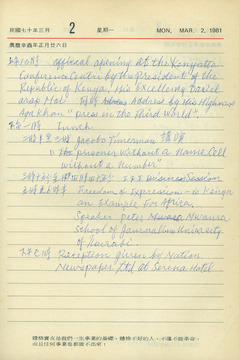 民國七十年三月 2 星期一 MON, MAR, 2, 1981
農曆辛酉年正月廿六日
official opening at the Kenyatta
Conference Centre by the President of the
Republic of Kenya, His Excellency Daniel
arap Moi. Address by His Highness
Aga Khan "press in the Third World".
Lunch
Jacobo Timerman
"The prisoner without a Name Cell
without a Number"
Business Session
Freedom of Expression - is Kenya
an Example for Africa.
Speaker Peter Mwaura
School of Journalism University
of Nairobi.
Reception given by Nation
Newspaper Ltd at Serena Hotel